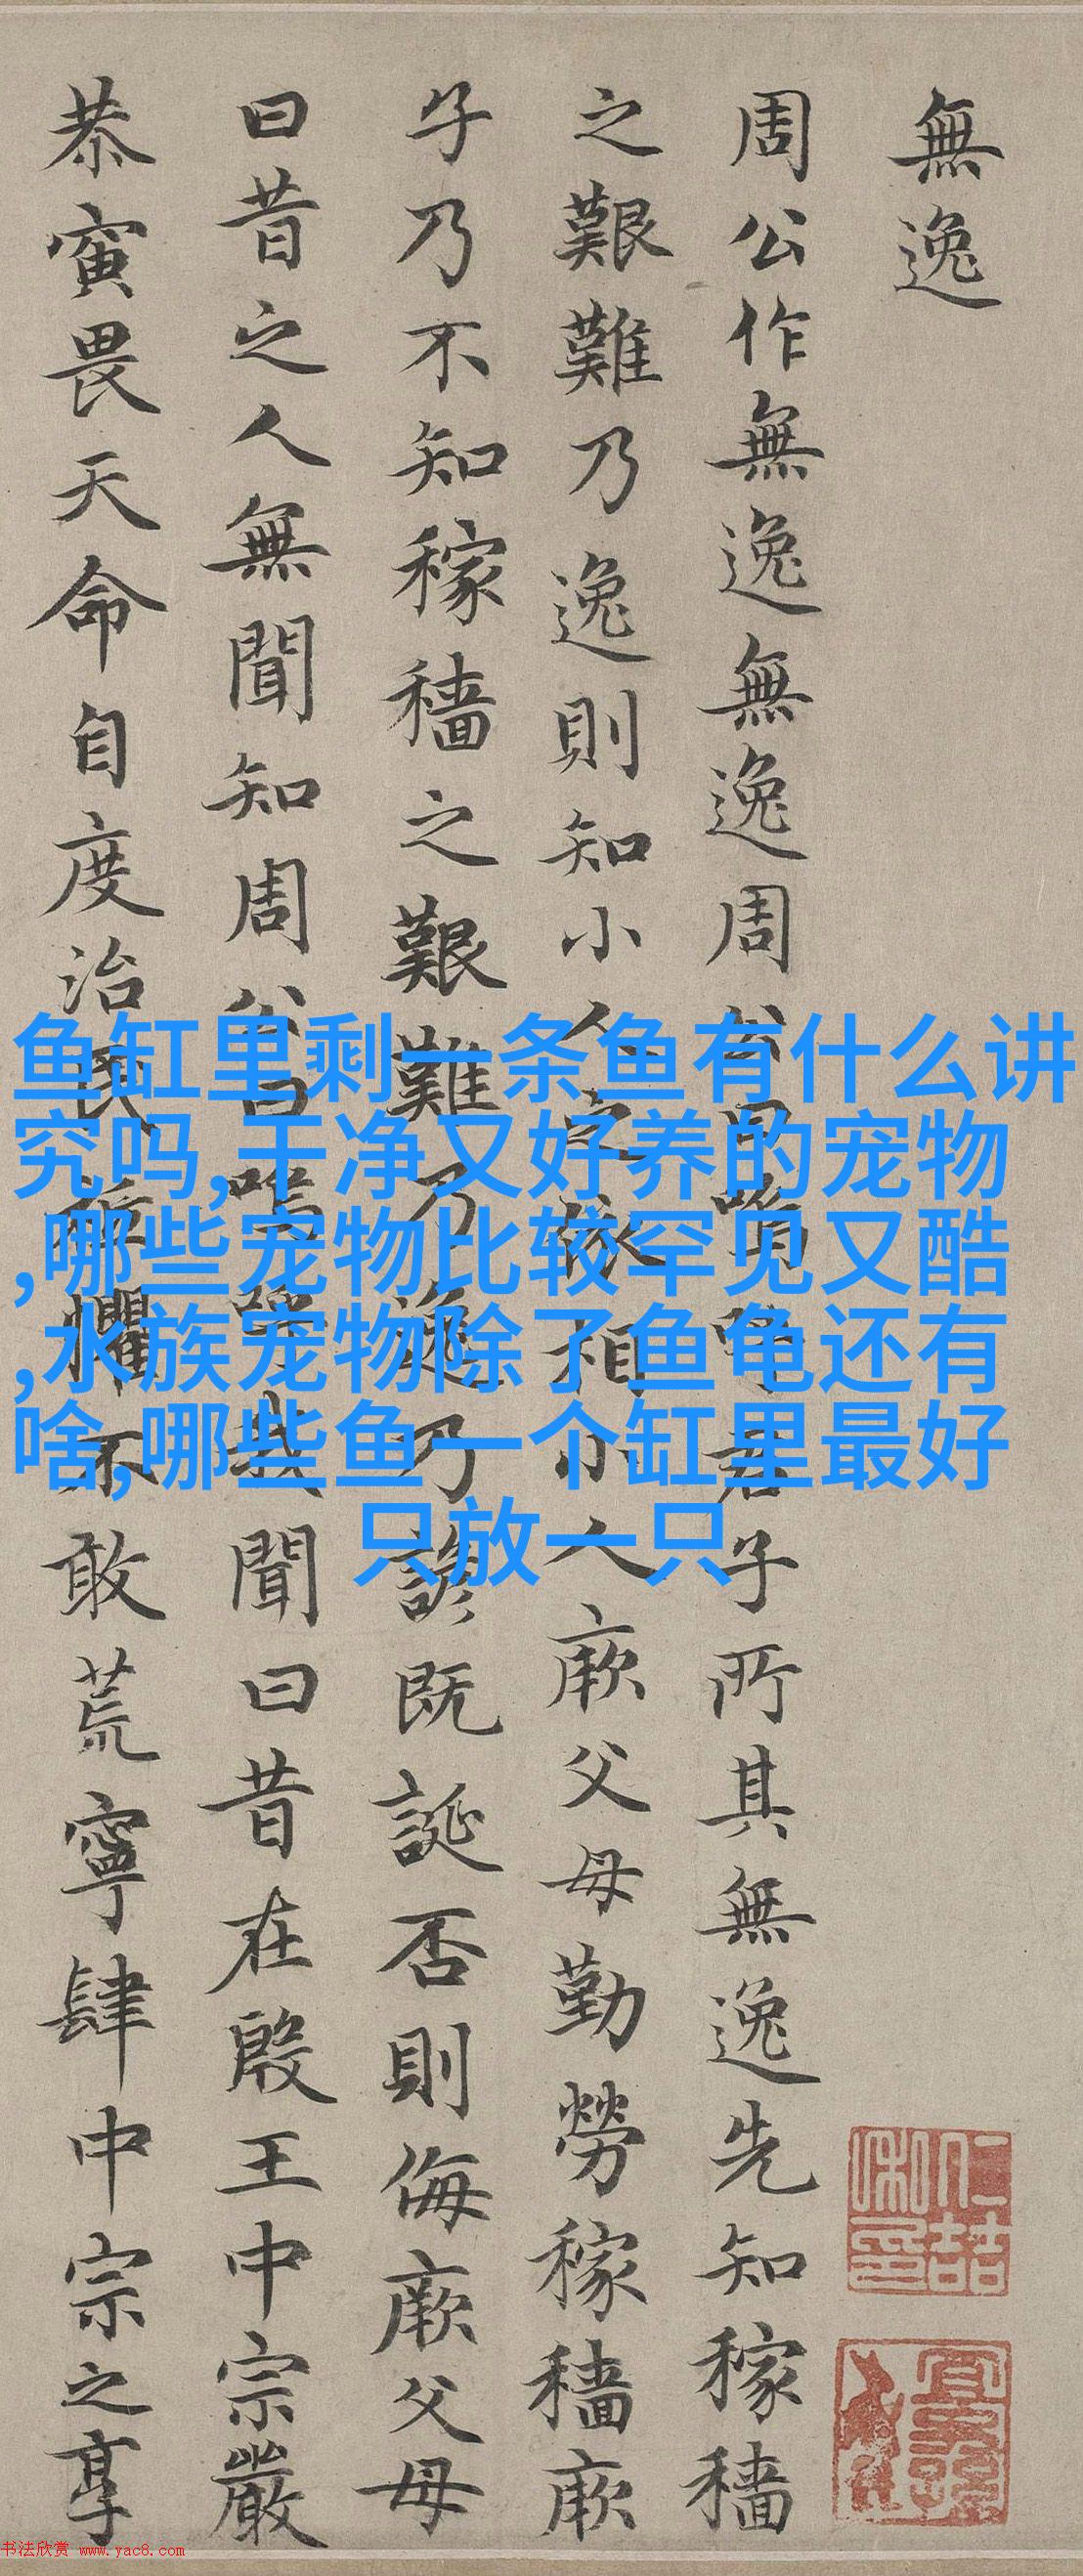 無逸
周公作無逸無逸周公曰嗚呼君子所其無逸先知稼穡
之艱難乃逸則知小人之依相小人厥父母勤勞稼穡厥
子乃不知稼穡之艱難乃逸乃諺既誕否則侮厥父母
曰昔之人無聞知周公曰嗚呼我聞曰昔在殷王中宗嚴
恭寅畏天命自度治民祗懼不敢荒寧肆中宗之享
鱼缸里剩一条鱼有什么讲
究吗,干净又好养的宠物
,哪些宠物比较罕见又酷
,水族宠物除了鱼龟还有
啥,哪些鱼一个缸里最好
只放一只
书法欣赏 www.yac8.com